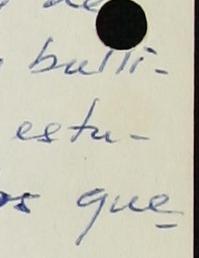 de
bulli-
estu-
os que